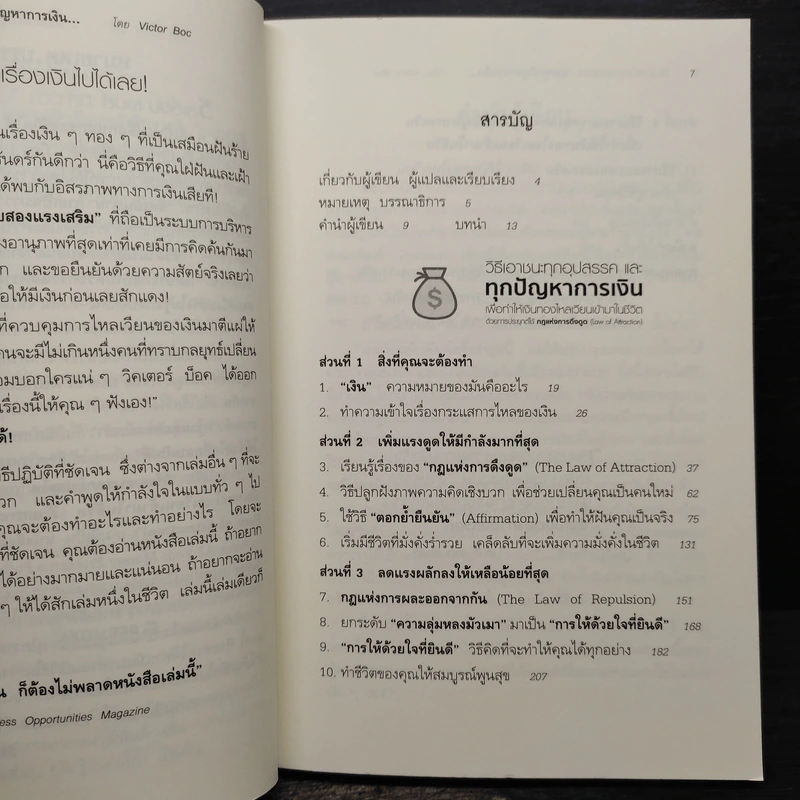 ปัญหาการเงิน...
โดย Victor Boc
เรื่องเงินไปได้เลย!
นเรื่องเงิน ๆ ทอง ๆ ที่เป็นเสมือนฝันร้าย
รันดร์กันดีกว่า นี่คือวิธีที่คุณใฝ่ฝันและเฝ้า
ด้พบกับอิสรภาพทางการเงินเสียที!
บสองแรงเสริม” ที่ถือเป็นระบบการบริหาร
งอานุภาพที่สุดเท่าที่เคยมีการคิดค้นกันมา
ก และขอยืนยันด้วยความสัตย์จริงเลยว่า
อให้มีเงินก่อนเลยสักแดง!
ที่ควบคุมการไหลเวียนของเงินมาตีแผ่ให้
คนจะมีไม่เกินหนึ่งคนที่ทราบกลยุทธ์เปลี่ยน
อมบอกใครแน่ ๆ วิคเตอร์ บ็อค ได้ออก
เรื่องนี้ให้คุณ ๆ ฟังเอง!”
ด้!
ธีปฏิบัติที่ชัดเจน ซึ่งต่างจากเล่มอื่น ๆ ที่จะ
วก และคำพูดให้กำลังใจในแบบทั่ว ๆ ไป
คุณจะต้องทำอะไรและทำอย่างไร โดยจะ
ที่ชัดเจน คุณต้องอ่านหนังสือเล่มนี้ ถ้าอยาก
ได้อย่างมากมายและแน่นอน ถ้าอยากจะอ่าน
ๆ ให้ได้สักเล่มหนึ่งในชีวิต เล่มนี้เล่มเดียวก็
น ก็ต้องไม่พลาดหนังสือเล่มนี้”
ess Opportunities Magazine
7
สารบัญ
เกี่ยวกับผู้เขียน ผู้แปลและเรียบเรียง 4
หมายเหตุ บรรณาธิการ 5
คำนำผู้เขียน 9 บทนำ 13
วิธีเอาชนะทุกอุปสรรค และ
ทุกปัญหาการเงิน
เพื่อทำให้เงินทองไหลเวียนเข้ามาในชีวิต
ด้วยการประยุกต์ใช้ กฎแห่งการดึงดูด (law of Attraction)
$
ส่วนที่ 1 สิ่งที่คุณจะต้องทำ
1. “เงิน” ความหมายของมันคืออะไร 19
2. ทำความเข้าใจเรื่องกระแสการไหลของเงิน 26
ส่วนที่ 2 เพิ่มแรงดูดให้มีกำลังมากที่สุด
3. เรียนรู้เรื่องของ “กฎแห่งการดึงดูด” (The Law of Attraction) 37
4. วิธีปลูกฝังภาพความคิดเชิงบวก เพื่อช่วยเปลี่ยนคุณเป็นคนใหม่ 62
5. ใช้วิธี “ตอกย้ำยืนยัน” (Affirmation) เพื่อทำให้ฝันคุณเป็นจริง 75
6. เริ่มมีชีวิตที่มั่งคั่งร่ำรวย เคล็ดลับที่จะเพิ่มความมั่งคั่งในชีวิต 131
ส่วนที่ 3 ลดแรงผลักลงให้เหลือน้อยที่สุด
7. กฎแห่งการผละออกจากกัน (The Law of Repulsion) 151
8. ยกระดับ “ความลุ่มหลงมัวเมา” มาเป็น “การให้ด้วยใจที่ยินดี” 168
9. “การให้ด้วยใจที่ยินดี” วิธีคิดที่จะทำให้คุณได้ทุกอย่าง 182
10. ทำชีวิตของคุณให้สมบูรณ์พูนสุข 207